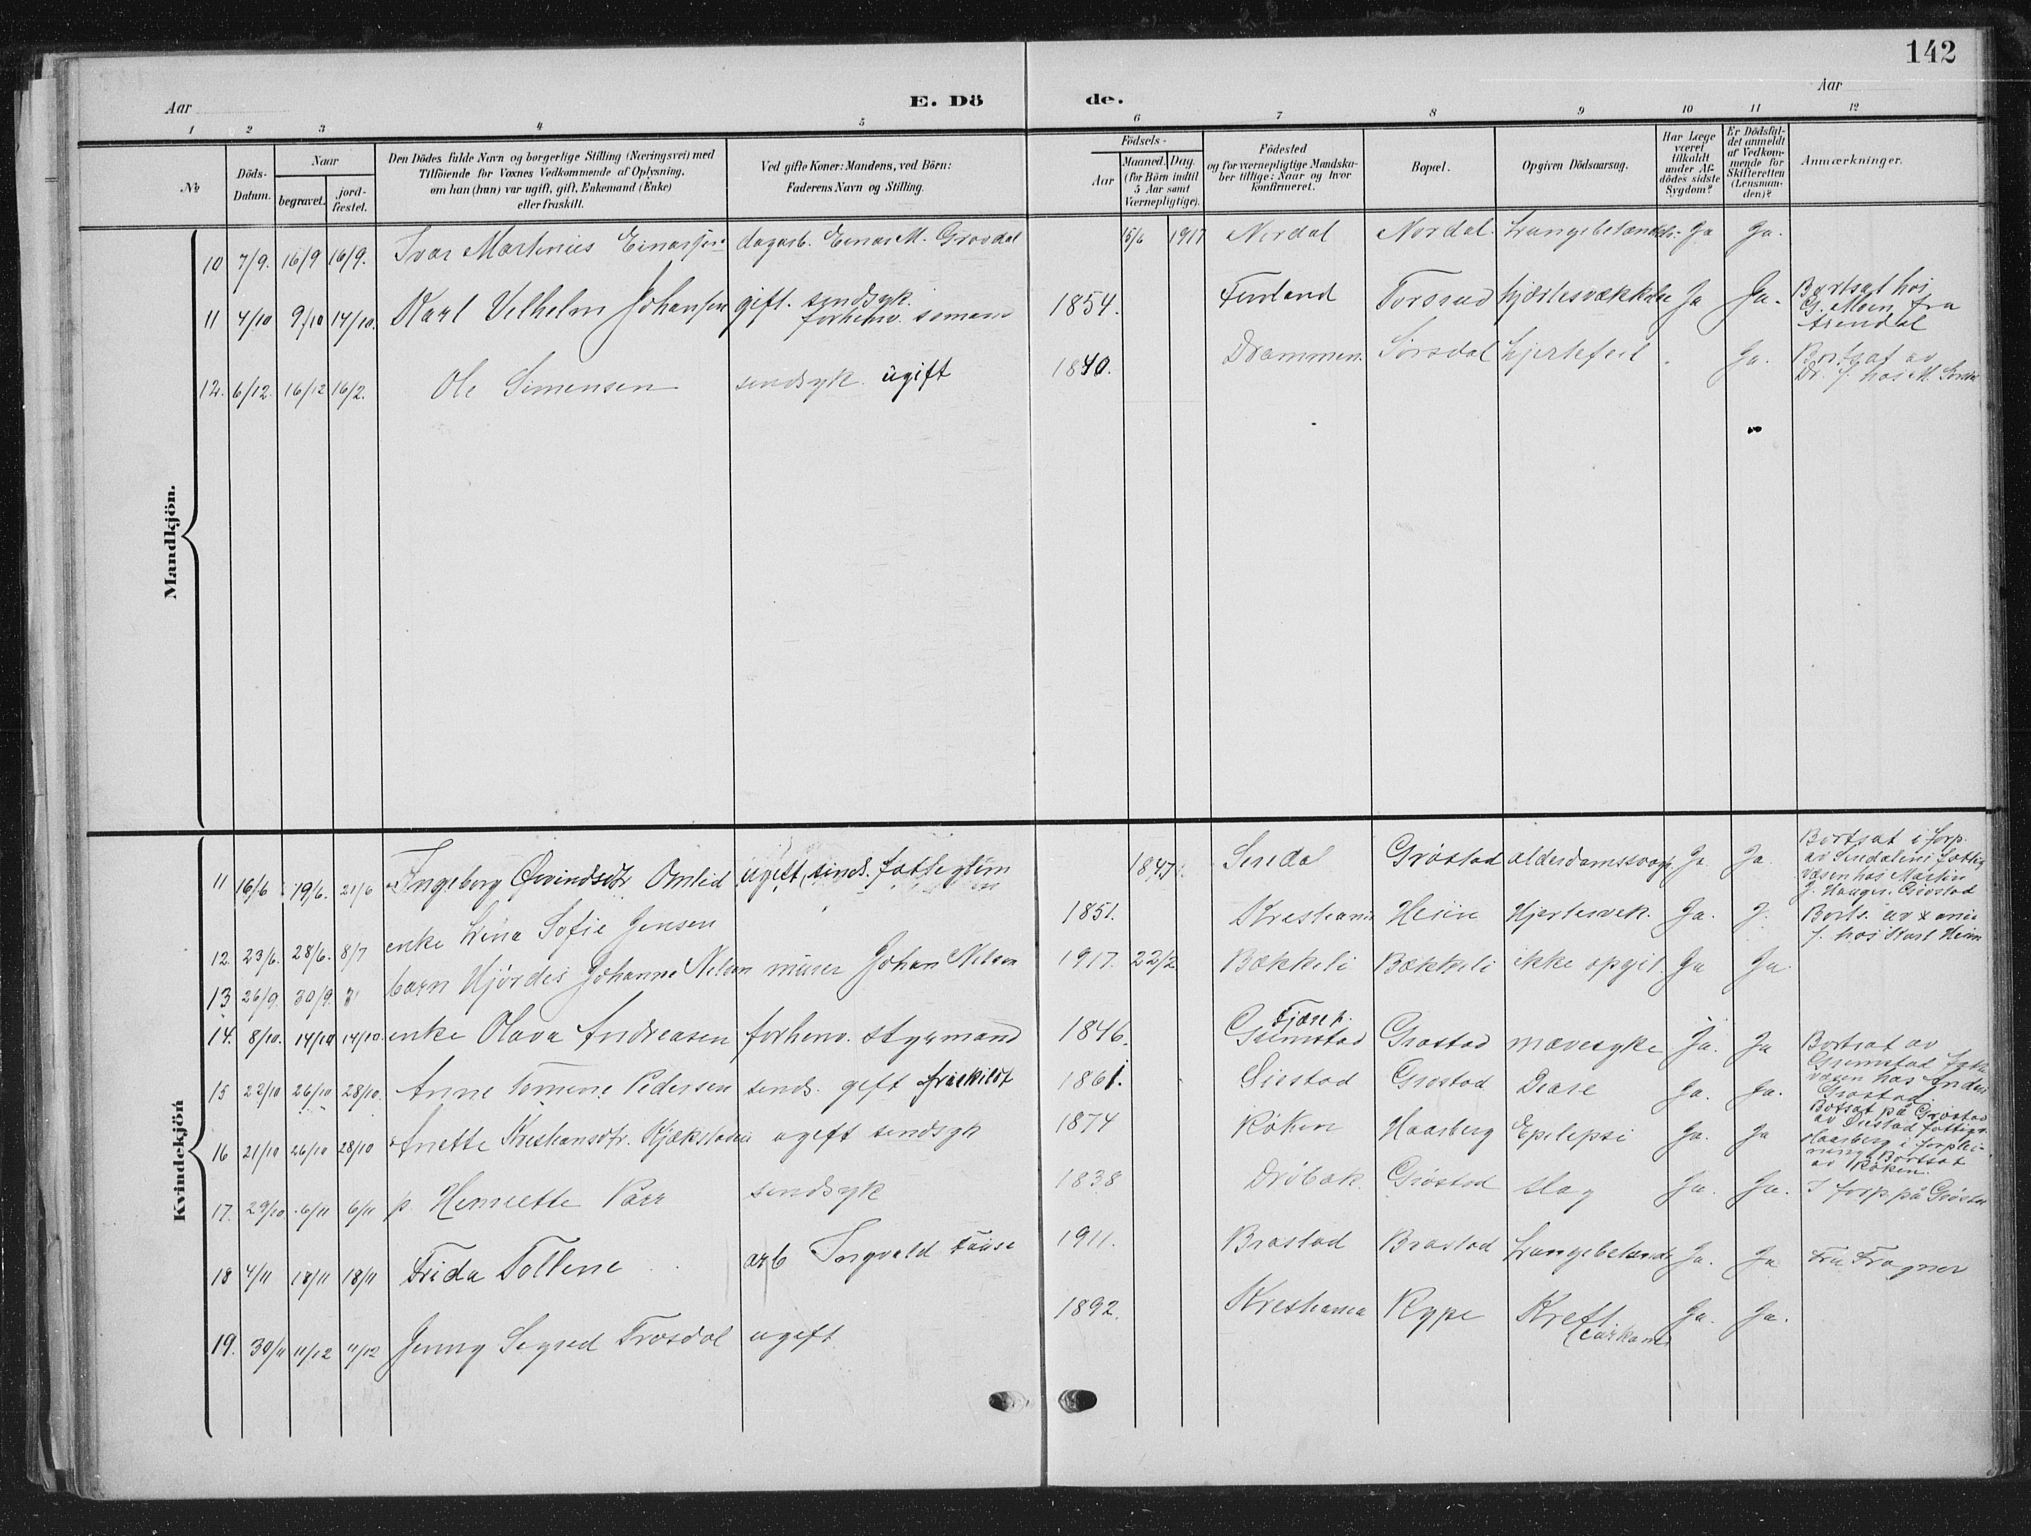 142
Aar
E. Dö
de.
Aar
1 2 3 4 5 6 7 8 9 10 11 12
No
Döds-
Datum.
Naar
begravet.
jord-
fæstet.
Den Dödes fulde Navn og borgerlige Stilling (Næringsvei) med
Tilföiende for Voxnes Vedkommende af Oplysning,
om han (hun) var ugift, gift, Enkemand (Enke)
eller fraskilt.
Ved gifte Koner: Mandens, ved Börn:
Faderens Navn og Stilling.
Födsels-
Aar
Maaned. Dag.
(for Börn indtil
5 Aar samt
Værnepligtige).
Födested
og for værnepligtige Mandska-
ber tillige: Naar og hvor
konfirmeret.
Bopæl.
Opgiven Dödsaarsag.
Har Læge
været
tilkaldt
under Af-
dödes sidste
Sygdom?
Er Dödsfal-
det anmeldt
af Vedkom-
mende for
Skifteretten
(Lensman-
den)?
Anmærkninger.
Mandkjön.
10 7/9. 16/9 16/9. Ivar Martinius Einarsen dagarb. Einar M. Grovdal 15/6 1917 Nordal Nordal Ja Ja.
11 4/10 9/10 14/10. Karl Vilhelm Johansen gift. sindsyk. 1854. Finland Torsrud hjertesvækkelse Ja Ja. Bortsat hos
forhenv. sømand G. Moen fra
Arendal
12. 6/12. 16/12 16/2. Ole Simensen sindsyk. ugift 1840. Drammen Sørsdal hjertefeil . Ja. Bortsat av
Dr. f. hos M.
Kvindekjön
11 16/6 19/6. 21/6 Ingeborg Øvindsdtr. Omlid ugift, sinds. fattiglem 1847. Sirdal Grøstad Ja Ja. Bortsat i forp.
av Sirdalens fattig
væsen hos Martin
J. Hauger. Grøstad
12. 23/6. 28/6. 8/7 enke Lina Sofie Jensen 1851. Kristiania Heim Hjertesvek. Ja. J. Borts. av
f. hos Karl Heim
13 26/9. 30/9. barn Hjørdis Johanne Nilsen murer Johan Nilsen 1917. 22/2 Bækkeli Bækkeli ikke opgit. Ja Ja
14. 8/10. 14/10 14/10. enke Olava Andreasen forhenv. styrmand 1846. Fjære p.
Grimstad Grøstad mavesyke Ja. Ja Bortsat av
Grimstad fatt.
væsen hos Anders
Grøstad
15 22/10 26/10 28/10. Anne Tomine Pedersen sinds. gift fraskildt 1861. Grøstad Diare Ja. Ja. Botsat på Grøstad
av fattigv.
16 21/10 26/10 28/10 Anette Kristiansdtr. ugift sindsyk 1874 Røken Haarberg Epilepsi Ja. Ja Haarberg i forplei-
ning. Bortsat
av Røken.
17. 29/10 6/11 6/11 p. Henriette sindsyk 1838 Drøbak Grøstad slag Ja. Ja. I forp på Grøstad
18 4/11 18/11 18/11 Frida Tollene arb Ingvald 1911. Brastad Brastad Ja. Ja Fra Fragner
19. 30/11 11/12 11/12 Jenny Sigrid Trosdal ugift. 1892. Kristiania Rype Kreft Ja. Ja.